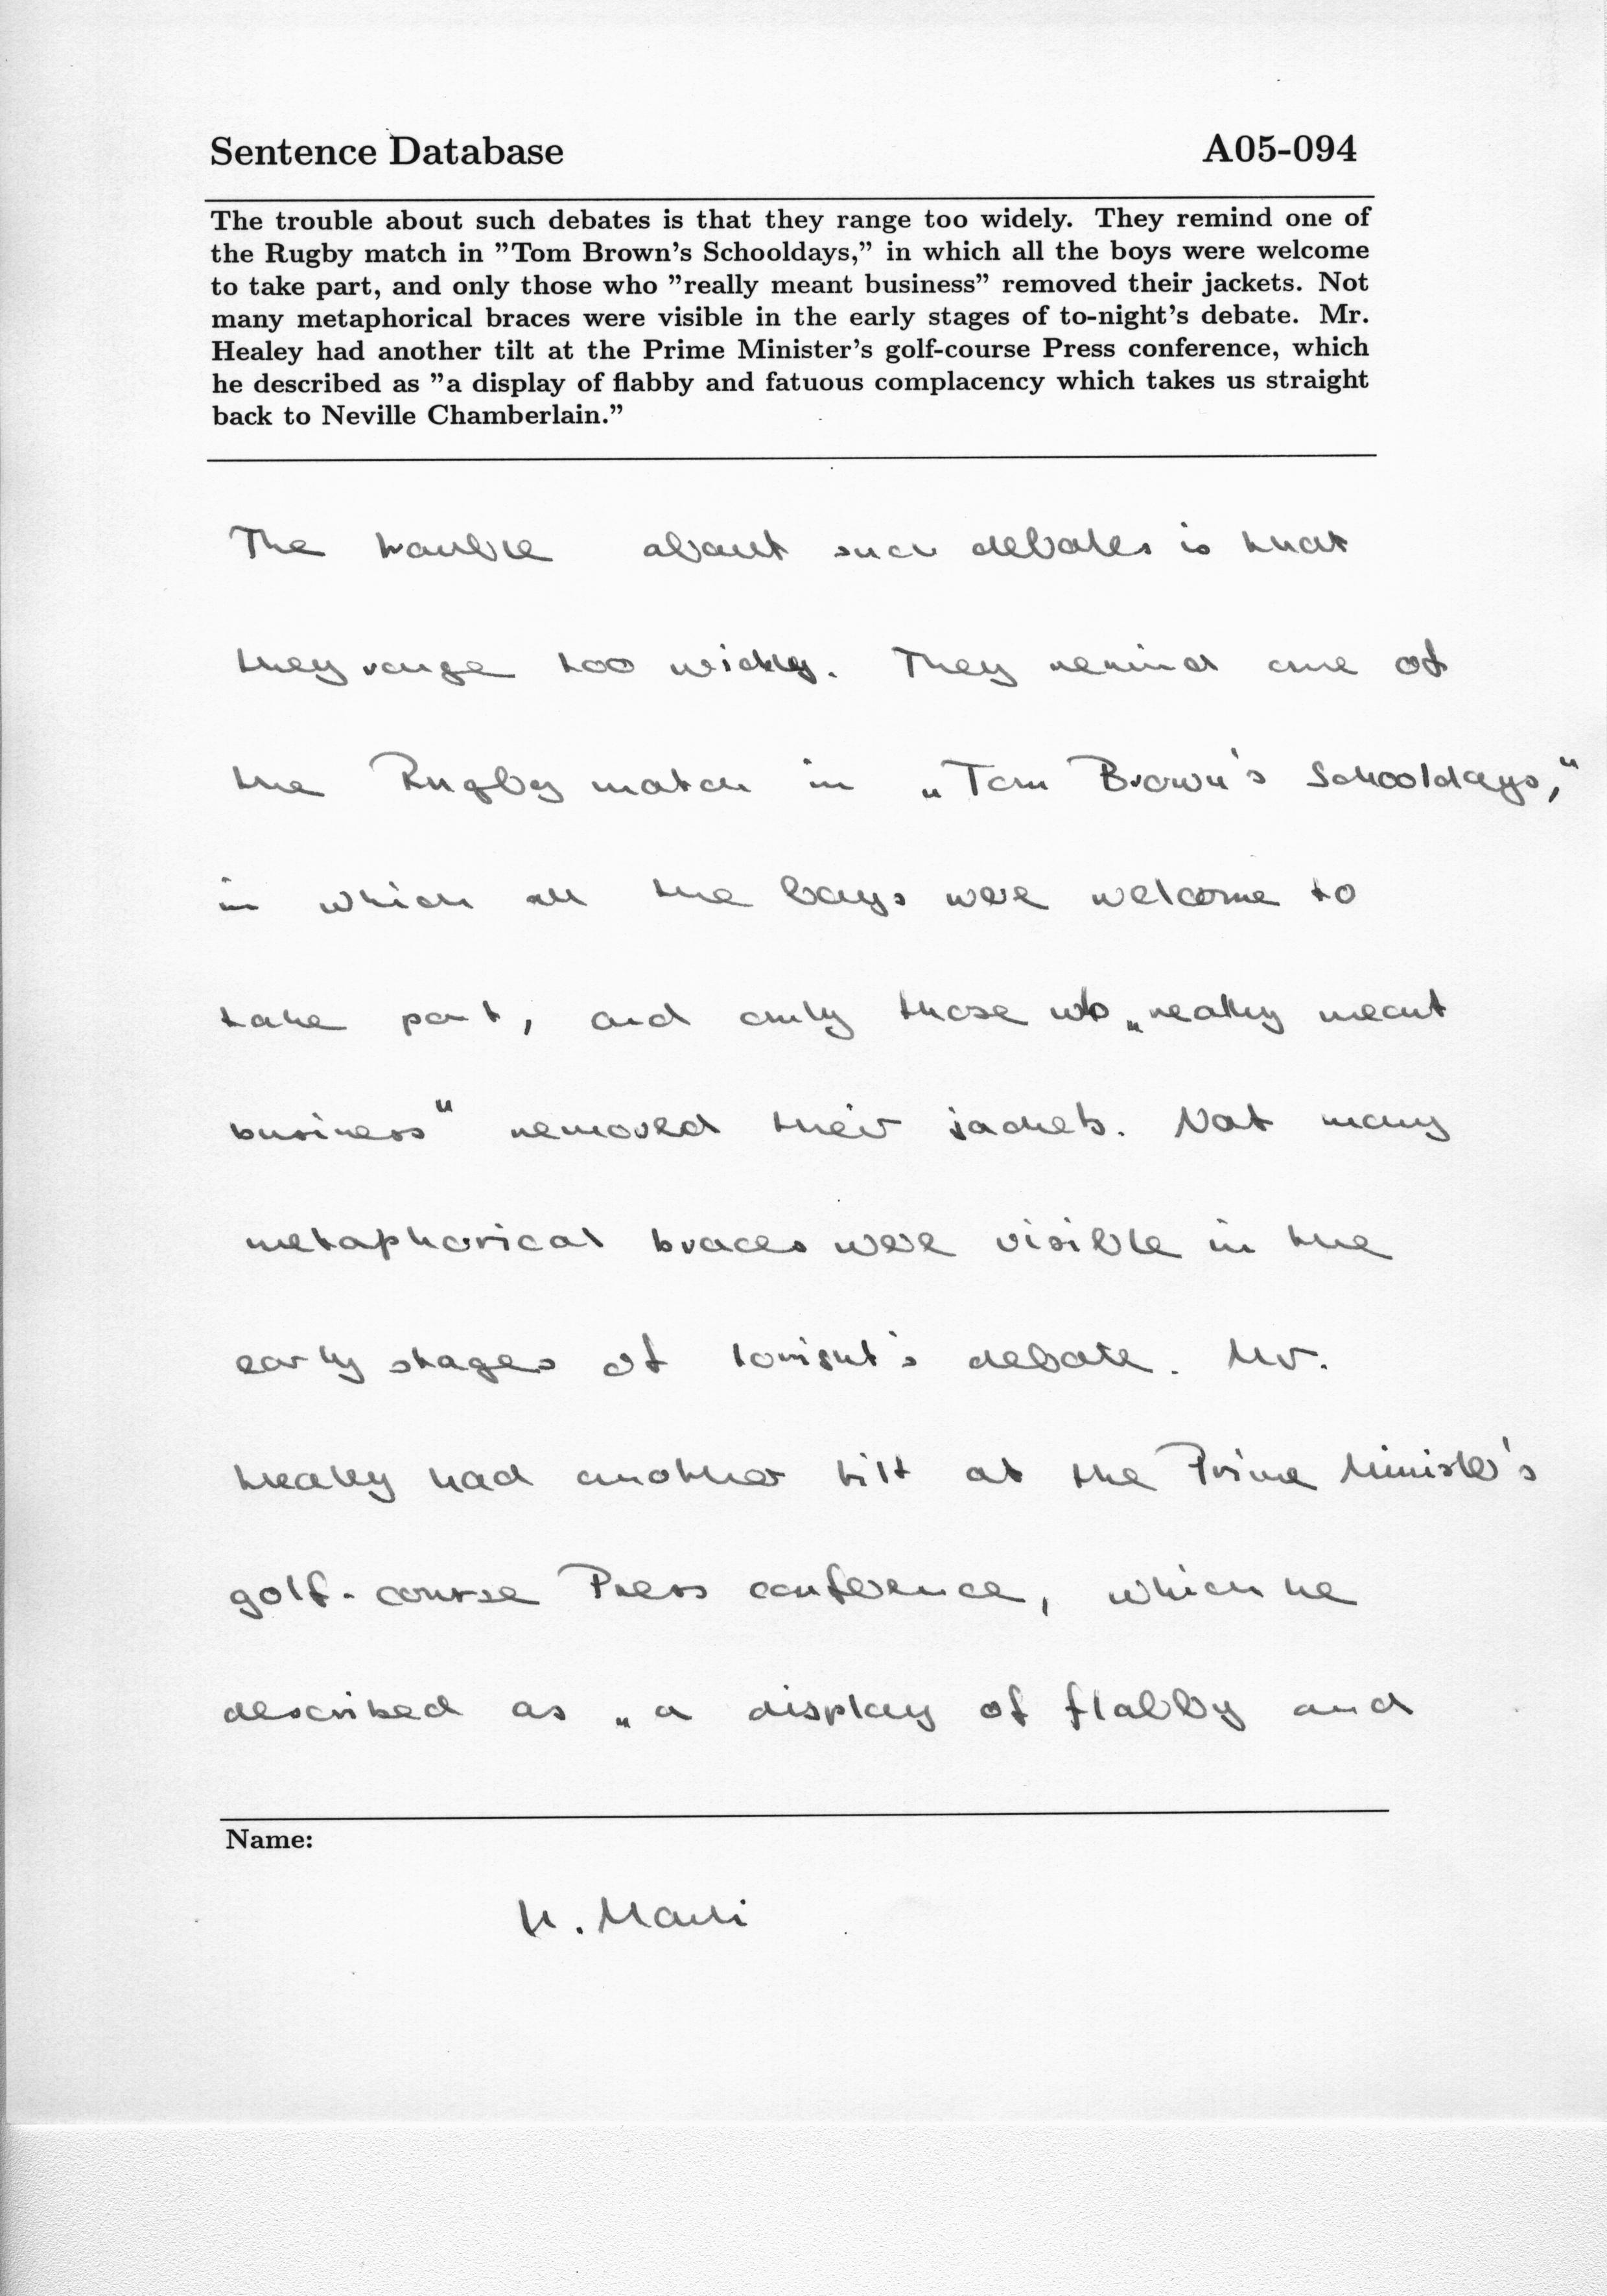 Sentence Database A05-094
The trouble about such debates is that they range too widely. They remind one of
the Rugby match in ”Tom Brown’s Schooldays,” in which all the boys were welcome
to take part, and only those who ”really meant business” removed their jackets. Not
many metaphorical braces were visible in the early stages of to-night’s debate. Mr.
Healey had another tilt at the Prime Minister’s golf-course Press conference, which
he described as ”a display of flabby and fatuous complacency which takes us straight
back to Neville Chamberlain.”
The trouble about such debates is that
they range too widely. They remind one of
the Rugby match in „Tom Brown's Schooldays,“
in which all the boys were welcome to
take part, and only those who „really meant
business“ removed their jackets. Not many
metaphorical braces were visible in the
early stages of tonight's debate. Mr.
Healey had another tilt at the Prime Minister's
golf-course Press conference, which he
described as „a display of flabby and
Name: